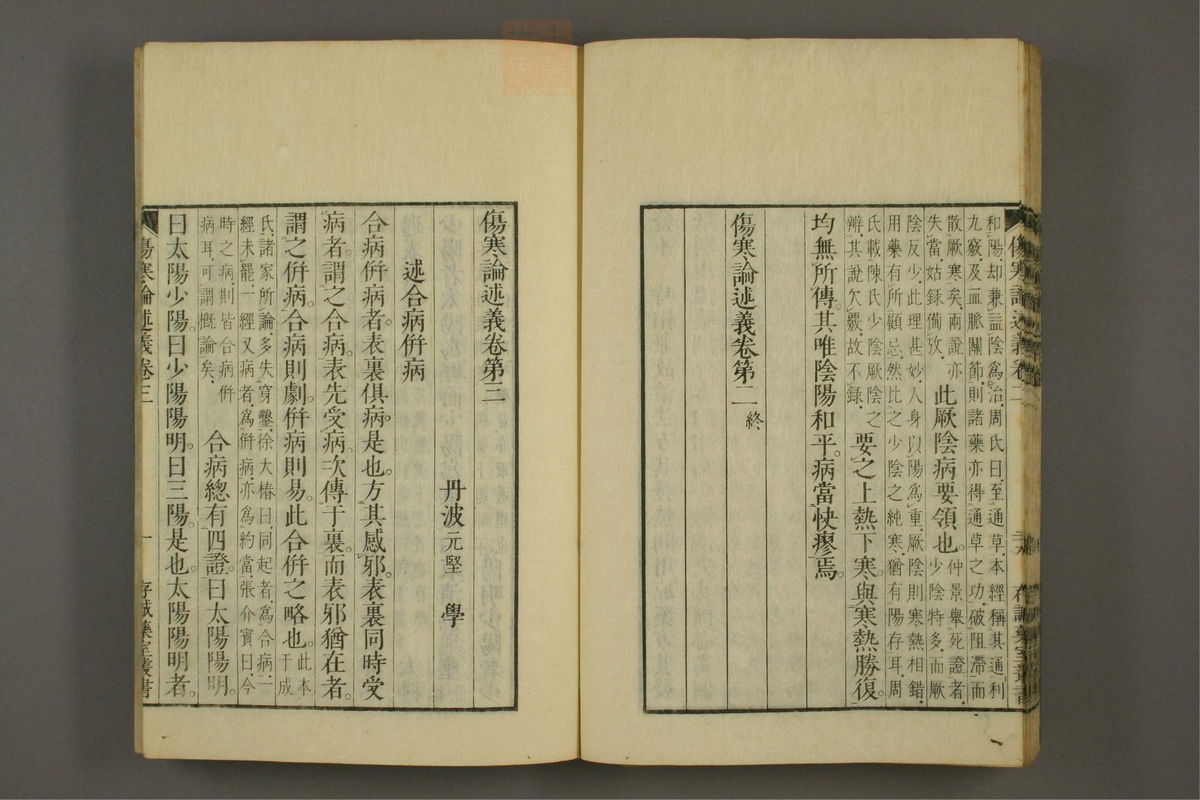 和陽却兼益陰爲治周氏曰至通草本經稱其通利
九竅及血脈關節則諸藥亦得通草之功破阻滯而
散厥寒矣兩說亦
失當姑録備攷
此厥陰病要領也。仲景舉死證者少陰特多而厥
陰反少此理甚妙人身以陽爲重厥陰則寒熱相錯
用藥有所顧忌然比之少陰之純寒猶有陽存耳周
氏載陳氏少陰厥陰之
辨其說欠覈故不錄
要之上熱下寒與寒熱勝復。
均無所傳。其唯陰陽和平。病當快瘳焉。
傷寒論述義卷第二 終
傷寒論述義卷第三
丹波元堅 學
述合病併病
合病併病者。表裏俱病。是也。方其感邪。表裏同時受
病者。謂之合病。表先受病。次傳于裏。而表邪猶在者。
謂之併病。合病則劇。併病則易。此合併之略也。此本于成
氏諸家所論多失穿鑿徐大椿曰同起者爲合病一
經未罷一經又病者爲併病亦爲約當張介賓曰今
時之病則皆合病併
病耳可謂概論矣
合病總有四證。曰太陽陽明。
曰太陽少陽。曰少陽陽明。曰三陽。是也。太陽陽明者。
傷寒論述義卷三
一
存誠藥室叢書